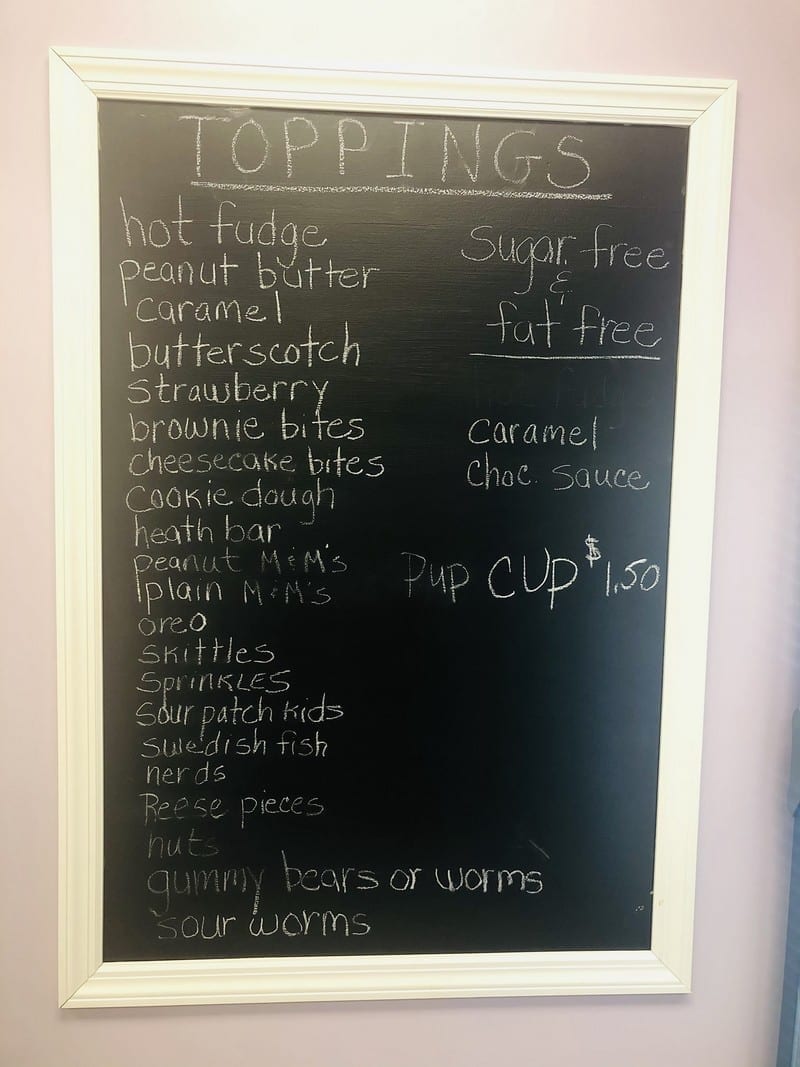 TOPPINGS
hot fudge
peanut butter
caramel
butterscotch
strawberry
brownie bites
cheesecake bites
cookie dough
heath bar
peanut M&M's
plain M&M's
oreo
skittles
SPRINKLES
sour patch kids
swedish fish
nerds
Reese pieces
nuts
gummy bears or worms
sour worms
Sugar free
&
fat free
hot fudge
caramel
choc. sauce
Pup CUP $1.50